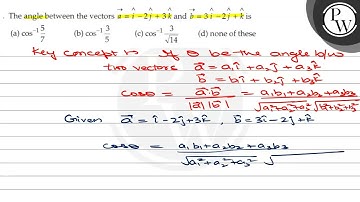 The angle between the vectors a⃗ = î − 2ĵ + 3k̂ and b⃗ = 3î − 2ĵ + k̂ is
(a) cos⁻¹ 5/7 (b) cos⁻¹ 3/5 (c) cos⁻¹ 3/√14 (d) none of these
Key concept :- If θ be the angle b/w
two vectors a⃗ = a₁î + a₂ĵ + a₃k̂
b⃗ = b₁î + b₂ĵ + b₃k̂
cosθ = a⃗·b⃗ / |a⃗||b⃗| = a₁b₁+a₂b₂+a₃b₃ / √a₁²+a₂²+a₃² √b₁²+b₂²+b₃²
Given a⃗ = î − 2ĵ + 3k̂ , b⃗ = 3î − 2ĵ + k̂
cosθ = a₁b₁+a₂b₂+a₃b₃ / √a₁²+a₂²+a₃² √